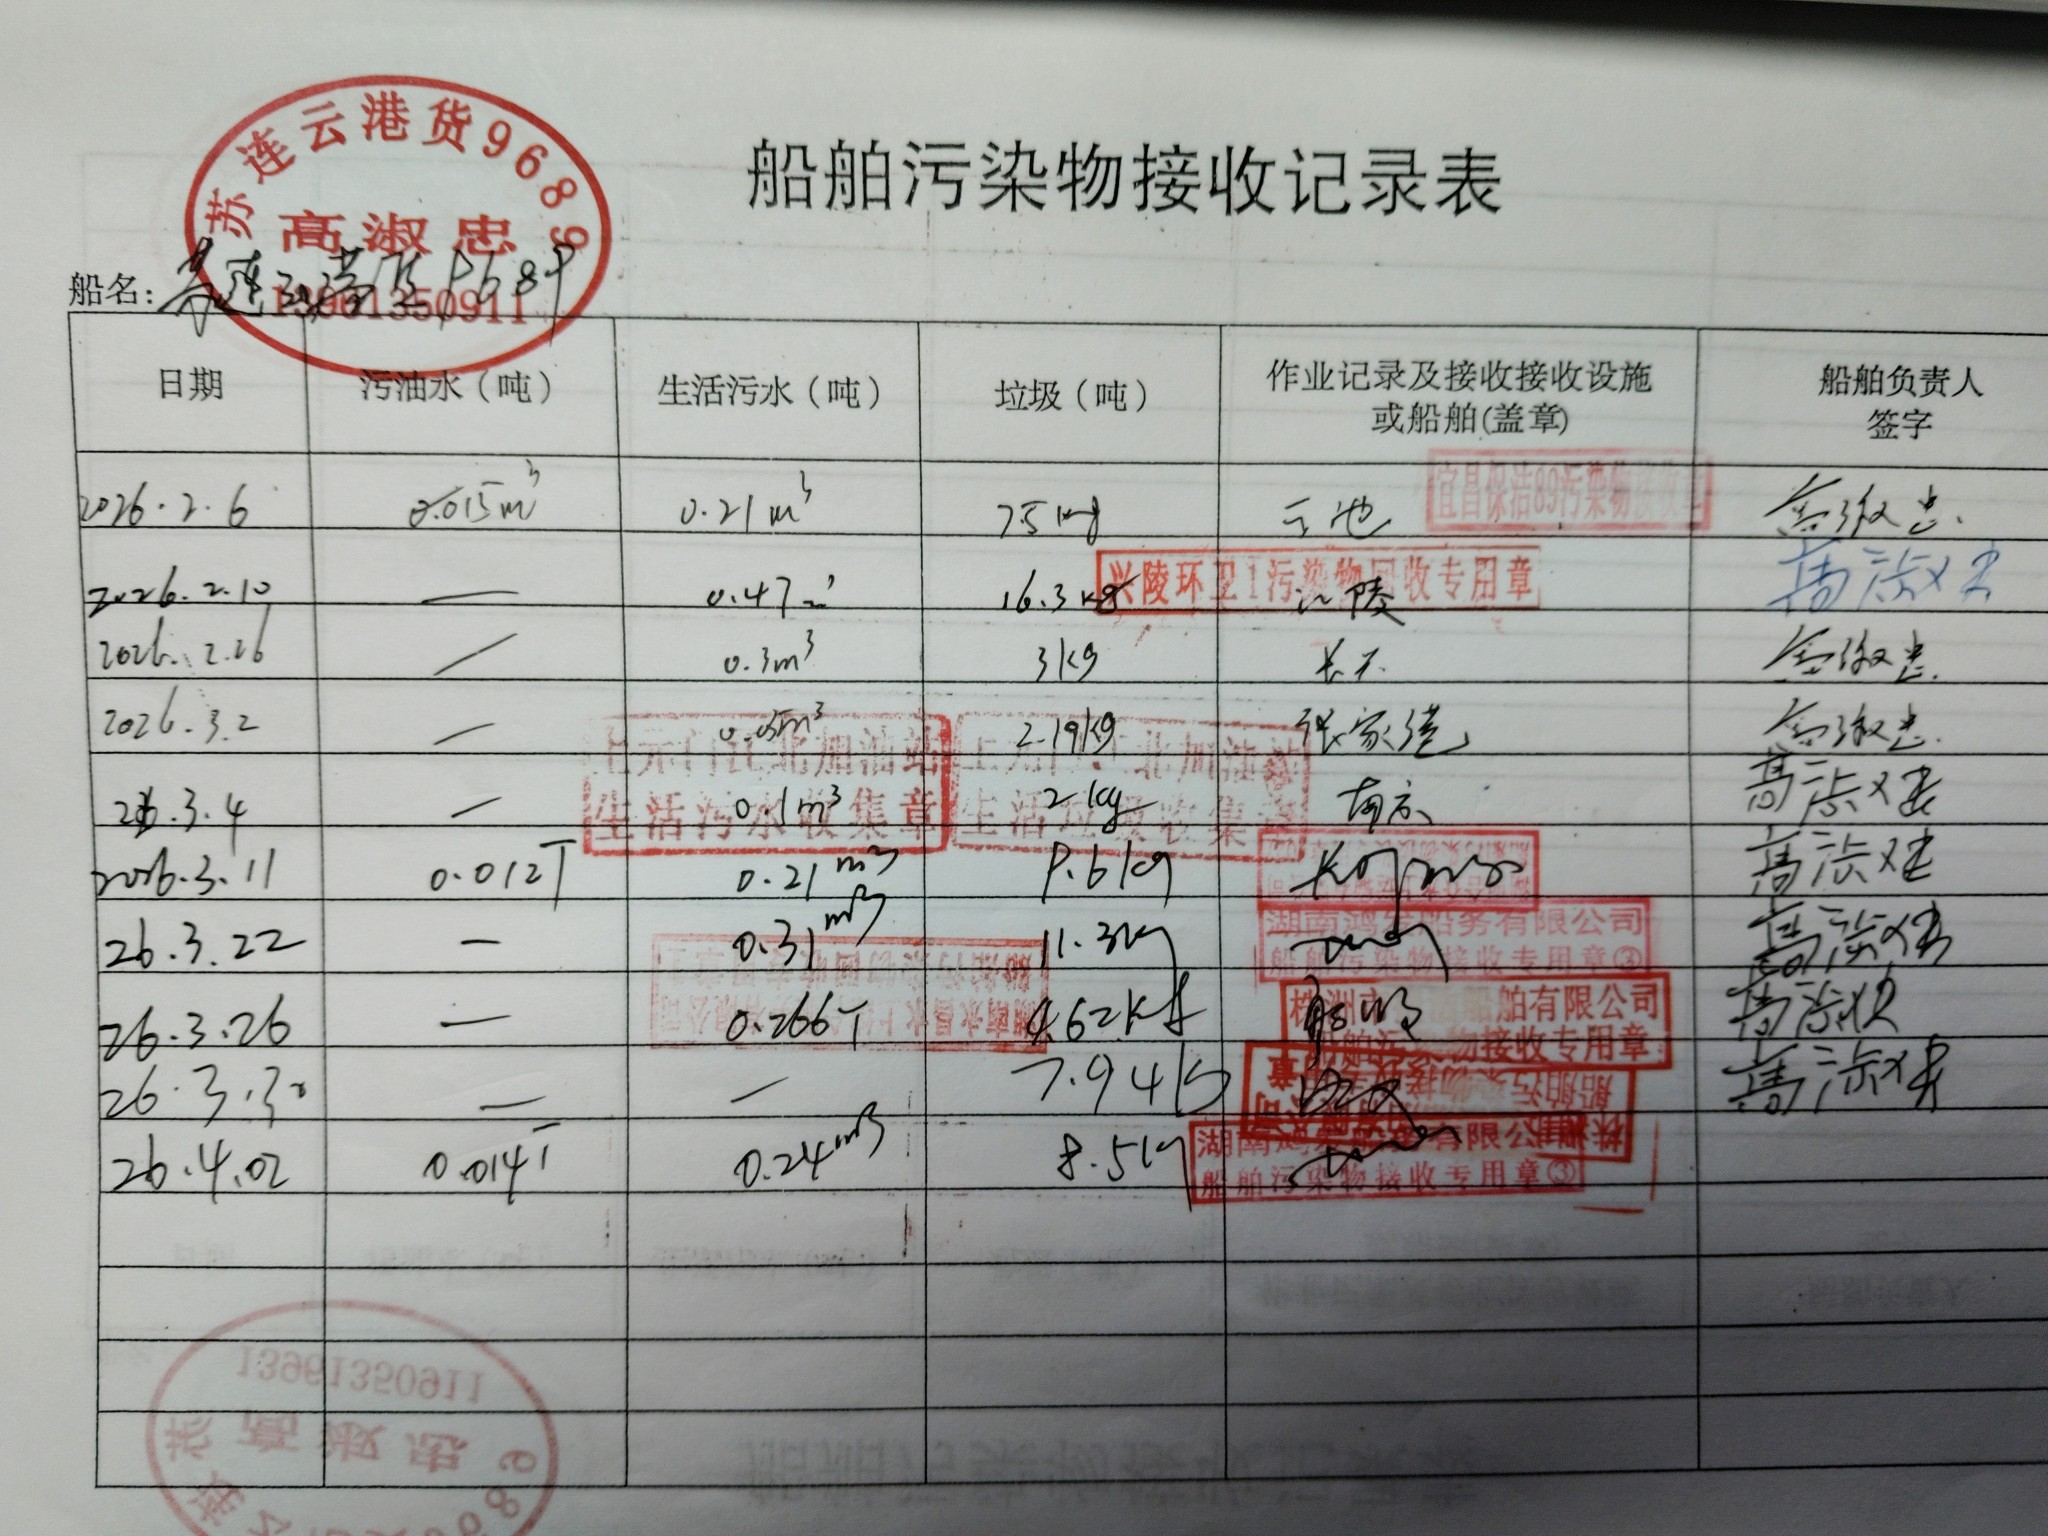 苏连云港货96899
高淑忠
13961350911
船舶污染物接收记录表
船名: 苏连云港货9689
日期 污油水（吨） 生活污水（吨） 垃圾（吨） 作业记录及接收接收设施或船舶(盖章) 船舶负责人签字
宜昌保洁89污染物接收章
2026.2.6 0.015m³ 0.21m³ 7.5kg 云池 高淑忠
兴陵环卫1污染物回收专用章
2026.2.10 — 0.47m³ 16.3kg 江陵 高淑忠
2026.2.26 — 0.3m³ 3kg 高淑忠
2026.3.2 — 0.05m³ 2.19kg 张家港 高淑忠
上元门江北加油站 上元门江北加油站
生活污水收集章 生活垃圾收集章
26.3.4 — 0.1m³ 2kg 南京 高淑忠
2026.3.11 0.012T 0.21m³ 9.6kg 高淑忠
湖南鸿发船务有限公司
船舶污染物接收专用章③
26.3.22 — 0.31m³ 11.3kg 高淑忠
株洲市 船舶有限公司
船舶污染物接收专用章
26.3.26 — 0.266T 4.62Kg 高淑忠
26.3.30 — — 7.94kg 高淑忠
湖南鸿发船务有限公司
船舶污染物接收专用章③
26.4.02 0.014T 0.24m³ 8.5kg